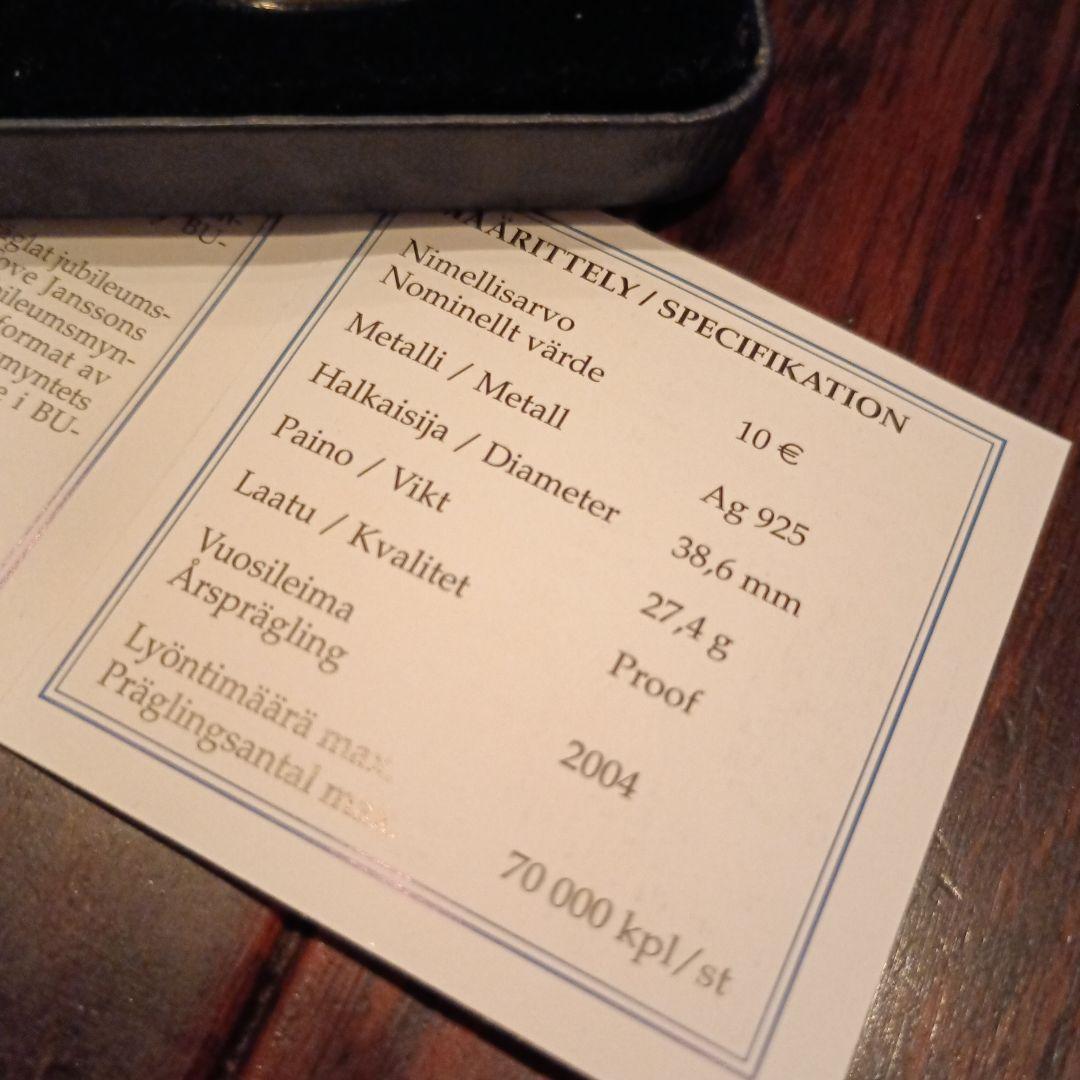 BU-
äglat jubileums-
ove Janssons
ileumsmyn-
format av
myntets
i BU-
MÄÄRITTELY / SPECIFIKATION
Nimellisarvo
Nominellt värde 10 €
Metalli / Metall Ag 925
Halkaisija / Diameter 38,6 mm
Paino / Vikt 27,4 g
Laatu / Kvalitet Proof
Vuosileima
Årsprägling 2004
Lyöntimäärä max.
Präglingsantal max. 70 000 kpl/st